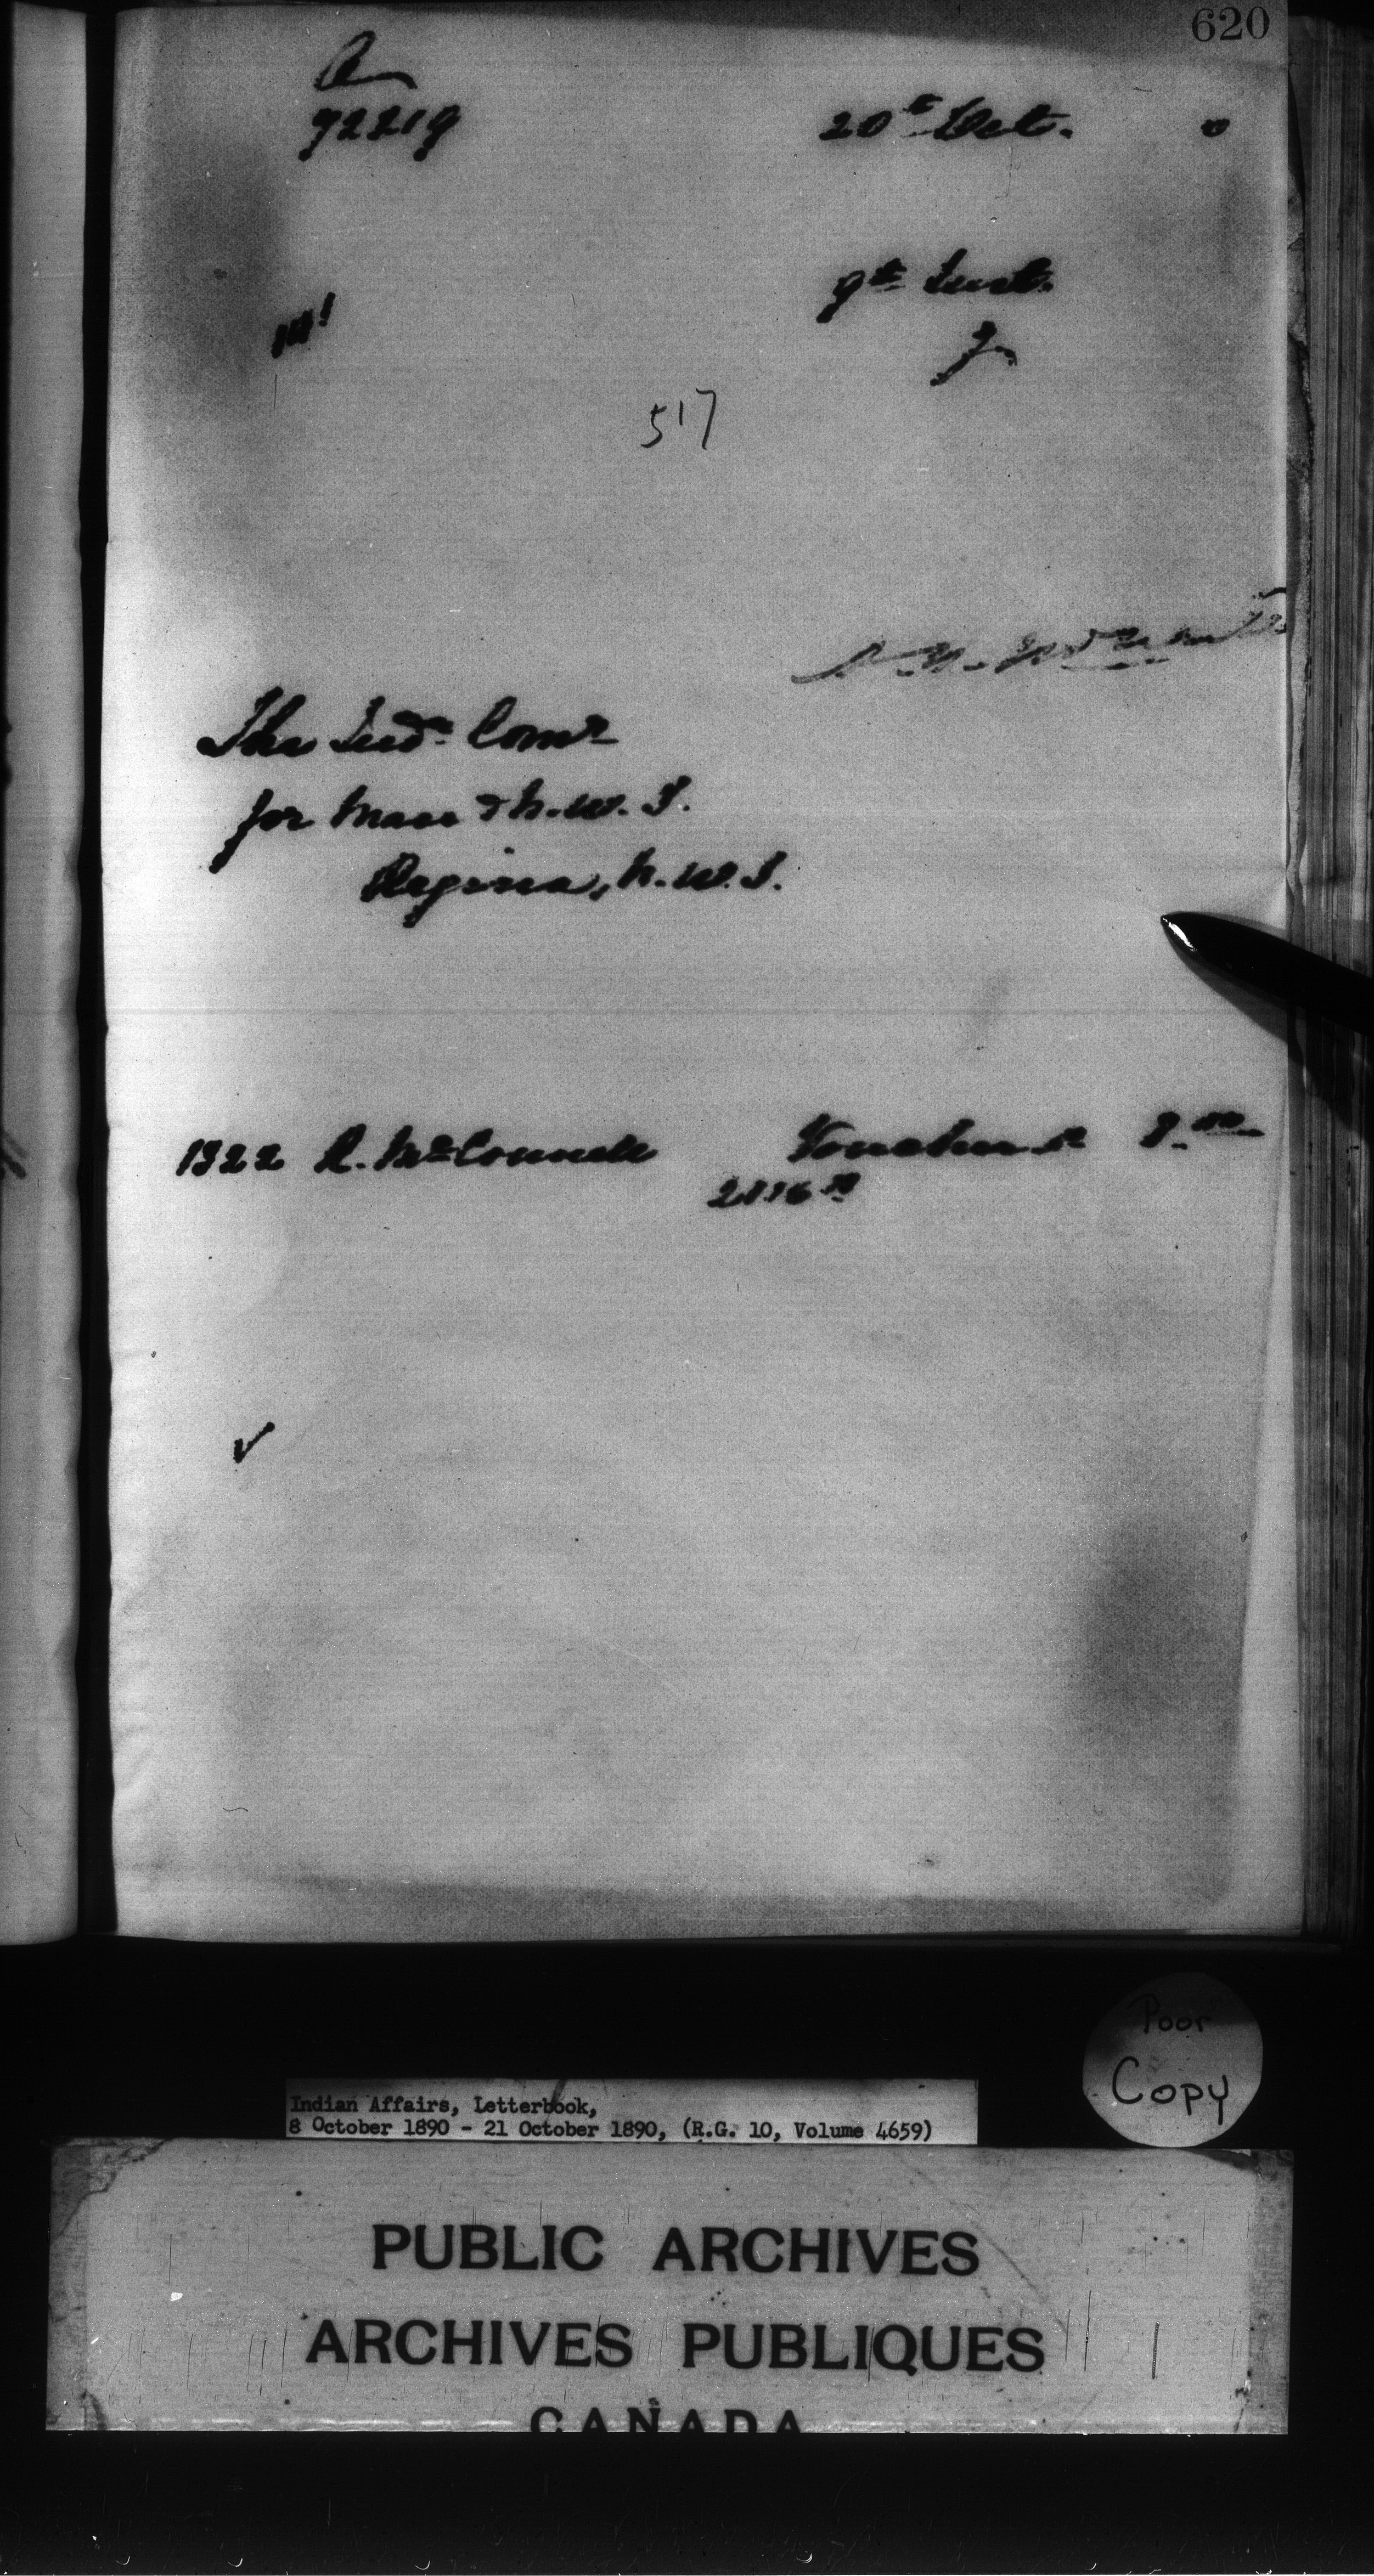 620
72219
20th Oct. 0
9th Inst.
517
The Indn Comr
for Man & N.W.T.
Regina, N.W.T.
1322 R. McConnell Voucher 8.00
2116
Poor
Copy
Indian Affairs, Letterbook,
8 October 1890 - 21 October 1890, (R.G. 10, Volume 4659)
PUBLIC ARCHIVES
ARCHIVES PUBLIQUES
CANADA